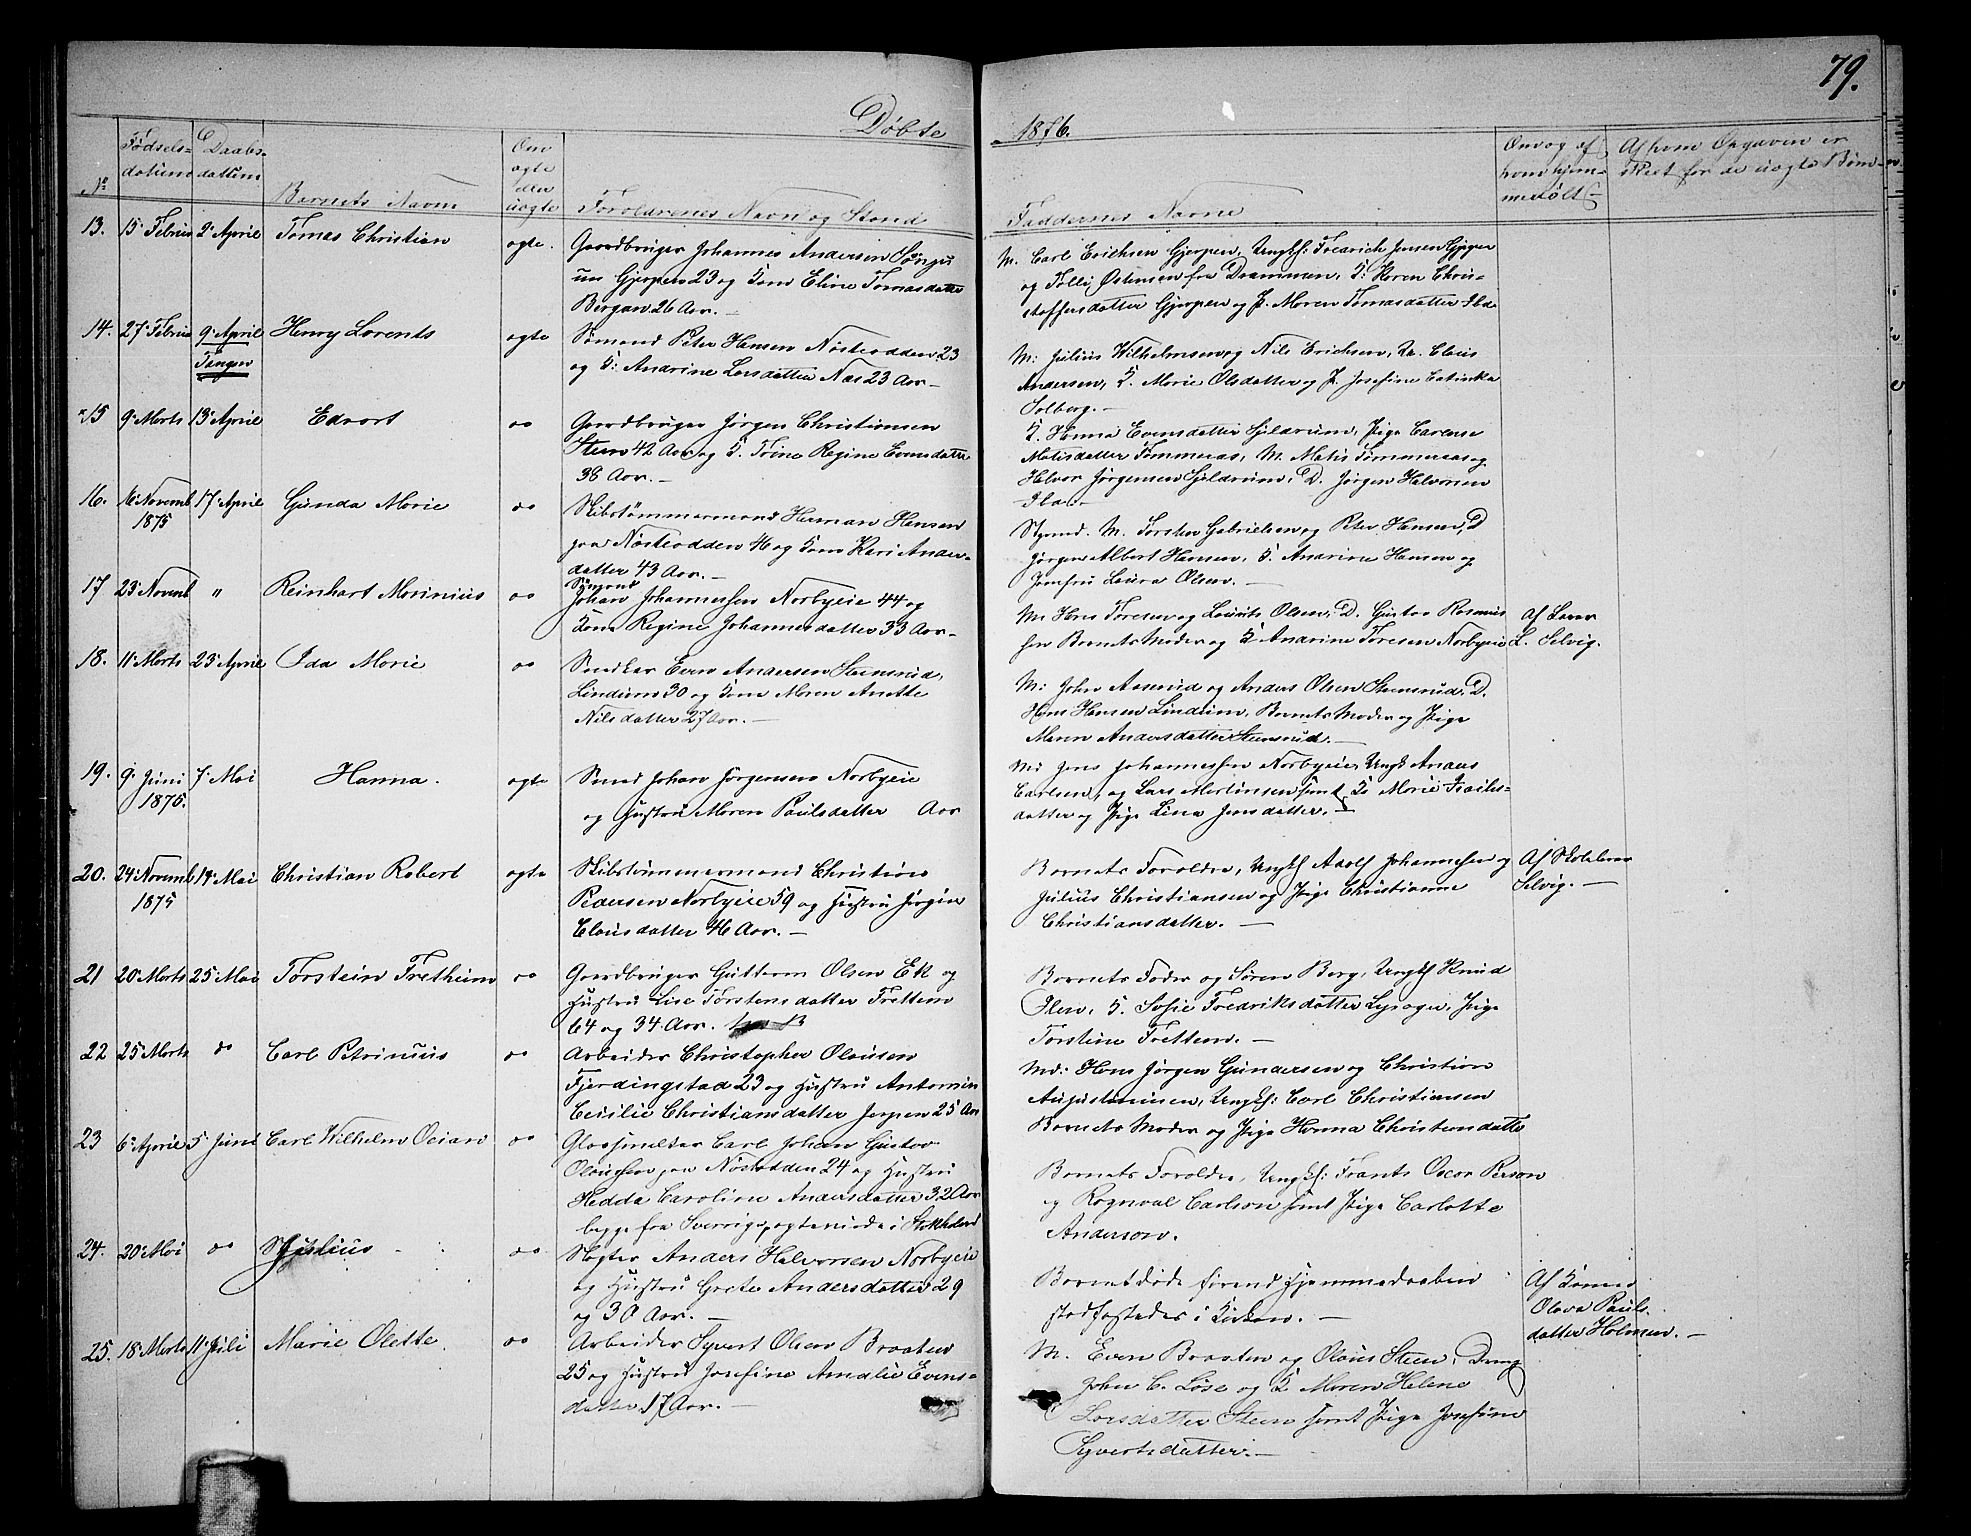 79.
Döbte 1876.
No
Födsels-
datum
Daabs-
dattum
Barnets Navn
Om
ægte
eller
uægte
Foreldrenes Navn og Stand
Faddernes Navne
Om og af
hvem hjem-
medøbt
Af hvem Opgaven er
skeet for de uægte Børn
13. 15 Februar 2 April Tomas Christian ægte. Gaardbruger Johannes Andersen
Gjerpen 23 og Kone Eline Tomasdatter
Bergan 26 Aar. —
M. Carl Erichsen Gjerpen, Ungk: Fredrich Jensen Gjerpen
og Tolli Ostensen fra Drammen, K: Karen Chris-
stoffersdatter Gjerpen og P. Maren Tomasdatter
14. 27 Februar 9 April
Tangen
Henry Lorents ægte Sømand Peter Hansen Nøsteodden 23
og K: Andrine Larsdatter Næs 23 Aar —
M: Julius Wilhelmsen og Nils Erichsen, Claus
Andersen, K. Marie Olsdatter og P. Josefine Catinka
Solberg. —
15 9 Marts 13 April Edvart do Gaardbruger Jørgen Christiansen
Steen 42 Aar og K. Trine Regine Evensdatter
38 Aar. —
K. Hanna Evensdatter Sjeldrum, Pige Carense
Matisdatter Tømmeraas, M. Matis Tømmeraas og
Halvor Jørgensen Sjeldrum, D. Jørgen Halvorsen
16. 16 Novemb
1875
17 April Gunda Marie do Skibstømmermand Herman Hansen
paa Nøsteodden 46 og Kone Kari Anders-
datter 43 Aar. —
Styrmd. M. Torsten Gabrielsen og Peter Hansen, D
Jørgen Albert Hansen, K. Andrine Hansen og
Jomfru Laura Olsen. —
17 23 Novemb " Reinhart Marinius do Sømand
Johan Johannessen Norbyeie 44 og
Kone Regine Johannesdatter 33 Aar —
M. Hans Toresen og Laurits Olsen, D. Gustav Rasmus
sen Barnets Moder og K Andrine Toresen Norbyeie
Af Lærer
L. Selvig.
18. 11 Marts 23 April Ida Marie do Snedker Even Andersen Steensrud
Lindum 30 og Kone Maren Anette
Nilsdatter 27 Aar. —
M: John Aaserud og Anders Olsen Steensrud, D.
Hans Hansen Lindum, Barnets Moder og Pige
Maren Andersdatter Steensrud. —
19. 9 Juni
1875.
7 Mai Hanna. ægte Smed Johan Jørgensen Norbyeie
og Hustru Maren Paulsdatter Aar
Md Jens Johannessen Norbyeie, Ungk Anders
Carlsen, og Lars Martinsen samt K Marie
datter og Pige Lina Jensdatter. —
20. 24 Novemb
1875
14 Mai Christian Robert ægte Skibstømmermand Christian
Pedersen Norbyeie 59 og Hustru Jørgine
Clausdatter 46 Aar. —
Barnets Foreldre, Ungkf Adolf Johannessen og
Julius Christiansen og Pige Christianne
Christiansdatter. —
Af Skolelærer
Selvig. —
21 20 Marts 25 Mai Torstein Frethiem do Gaardbruger Guttorm Olsen Ek og
Hustru Lise Torstensdatter Frettem
64 og 34 Aar.
Barnets Fader og Søren Berg, Ungkf Knud
Olsen, K. Sofie Fredriksdatter Lysager, Pige
Torstine Frettem. —
22 25 Marts do Carl Petrinius do Arbeider Christopher Olausen
Fjerdingstad 23 og Hustru Antomin
Cecilie Christiansdatter Jerpen 25 Aar
Md: Hans Jørgen Gundersen og Christian
Augustinussen, Ungkf: Carl Christiansen
Barnets Moder og Pige Hanna Christensdatter
23 6 April 5 Juni Carl Wilhelm Ocian do Glassmelter Carl Johan Gustav
Olaussen paa Nøsteodden 24 og Hustru
Hedda Caroline Andersdatter 32 Aar
begge fra Sverrige, ægteviede i Stokholm
Barnets Foreldre, Ungkf: Frants Oscar Person
og Rognval Carlson samt Pige Carlotte
Anderson.
24. 20 Mai do Julius do Slagter Anders Halvorsen Norbyeie
og Hustru Grete Andersdatter 29
og 30 Aar. —
Barnet døde førend Hjemmedaaben
stadfæstedes i Kirken. —
Af Konen
Olava Pauls-
datter Holmen. —
25. 18 Marts 11 Juli Marie Olette do Arbeider Syvert Olsen Braaten
25 og Hustru Josefine Amalie Evens-
datter 17 Aar. —
M. Even Braaten og Olaus Steen, Dreng
John C. Løse og K Maren Helene
Larsdatter Steen samt Pige Josefine
Syvertsdatter. —